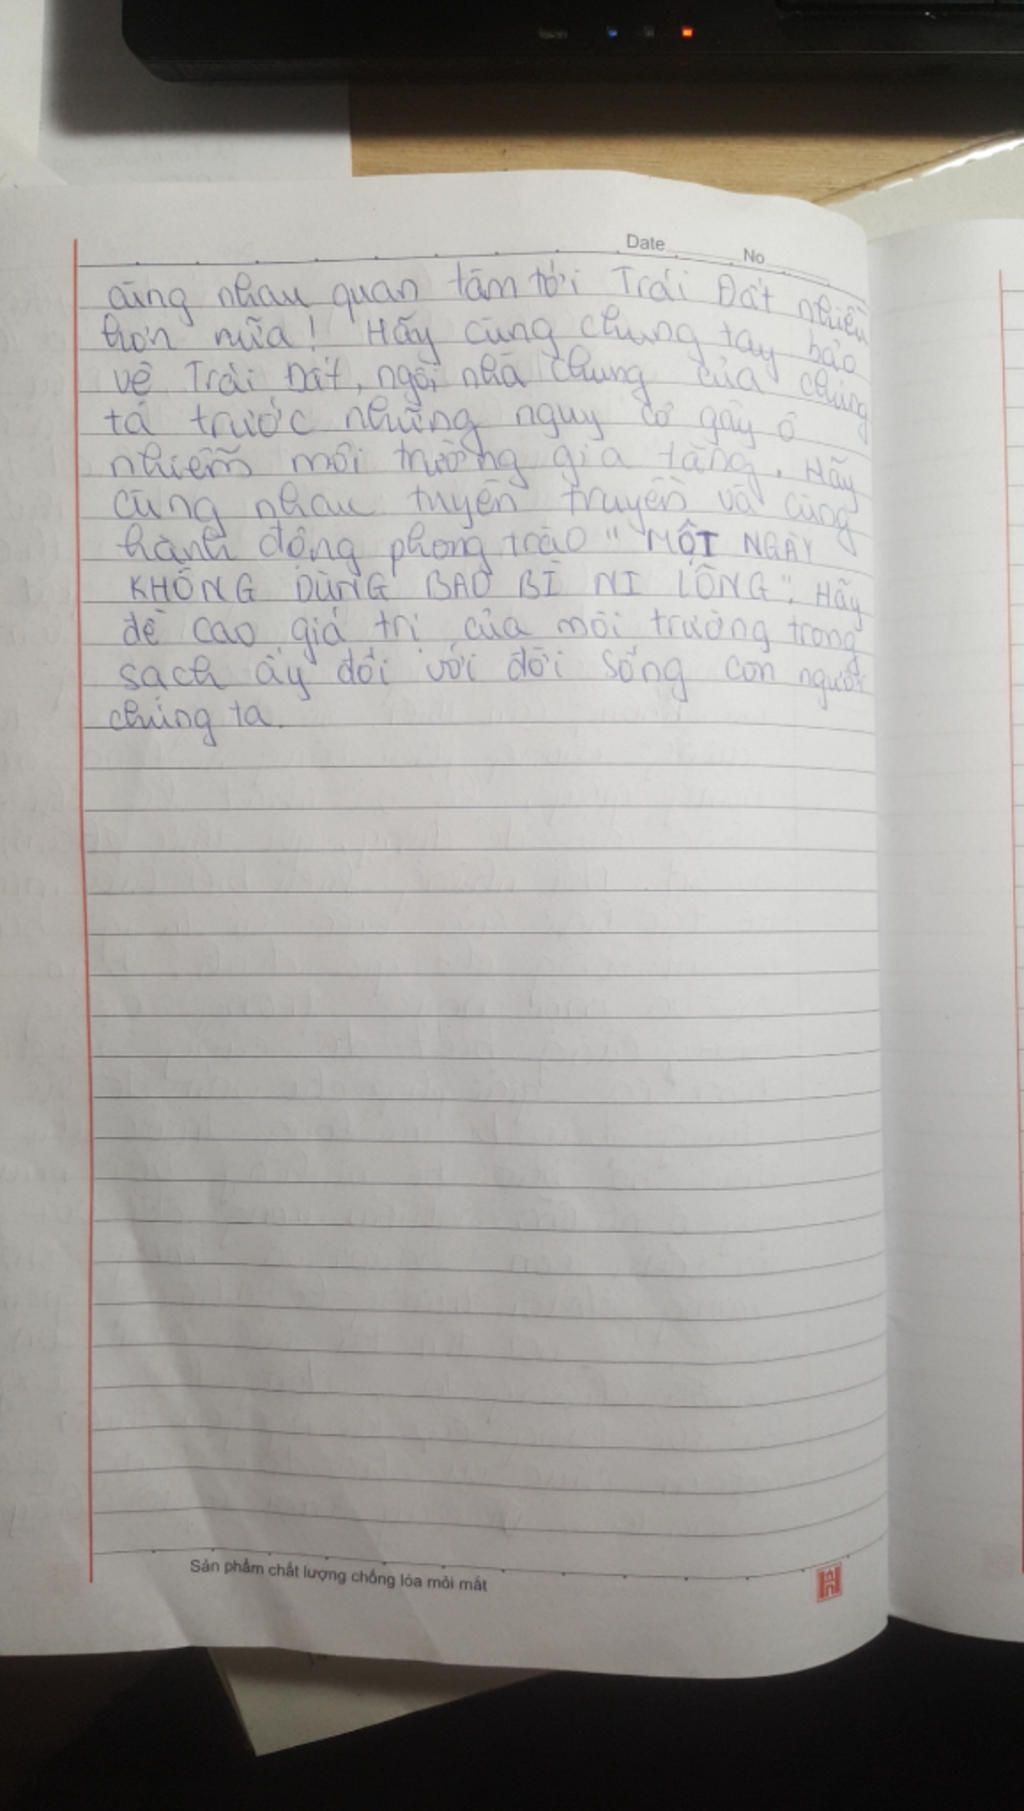 Date No
cùng nhau quan tâm tới Trái Đất nhiều
hơn nữa! Hãy cùng chung tay bảo
vệ Trái Đất, ngôi nhà chung của chúng
ta trước những nguy cơ gây ô
nhiễm môi trường gia tăng. Hãy
cùng nhau tuyên truyền và cùng
hành động phong trào "MỘT NGÀY
KHÔNG DÙNG BAO BÌ NI LÔNG". Hãy
đề cao giá trị của môi trường trong
sạch ấy đối với đời sống con người
chúng ta.
Sản phẩm chất lượng chống lóa mỏi mắt